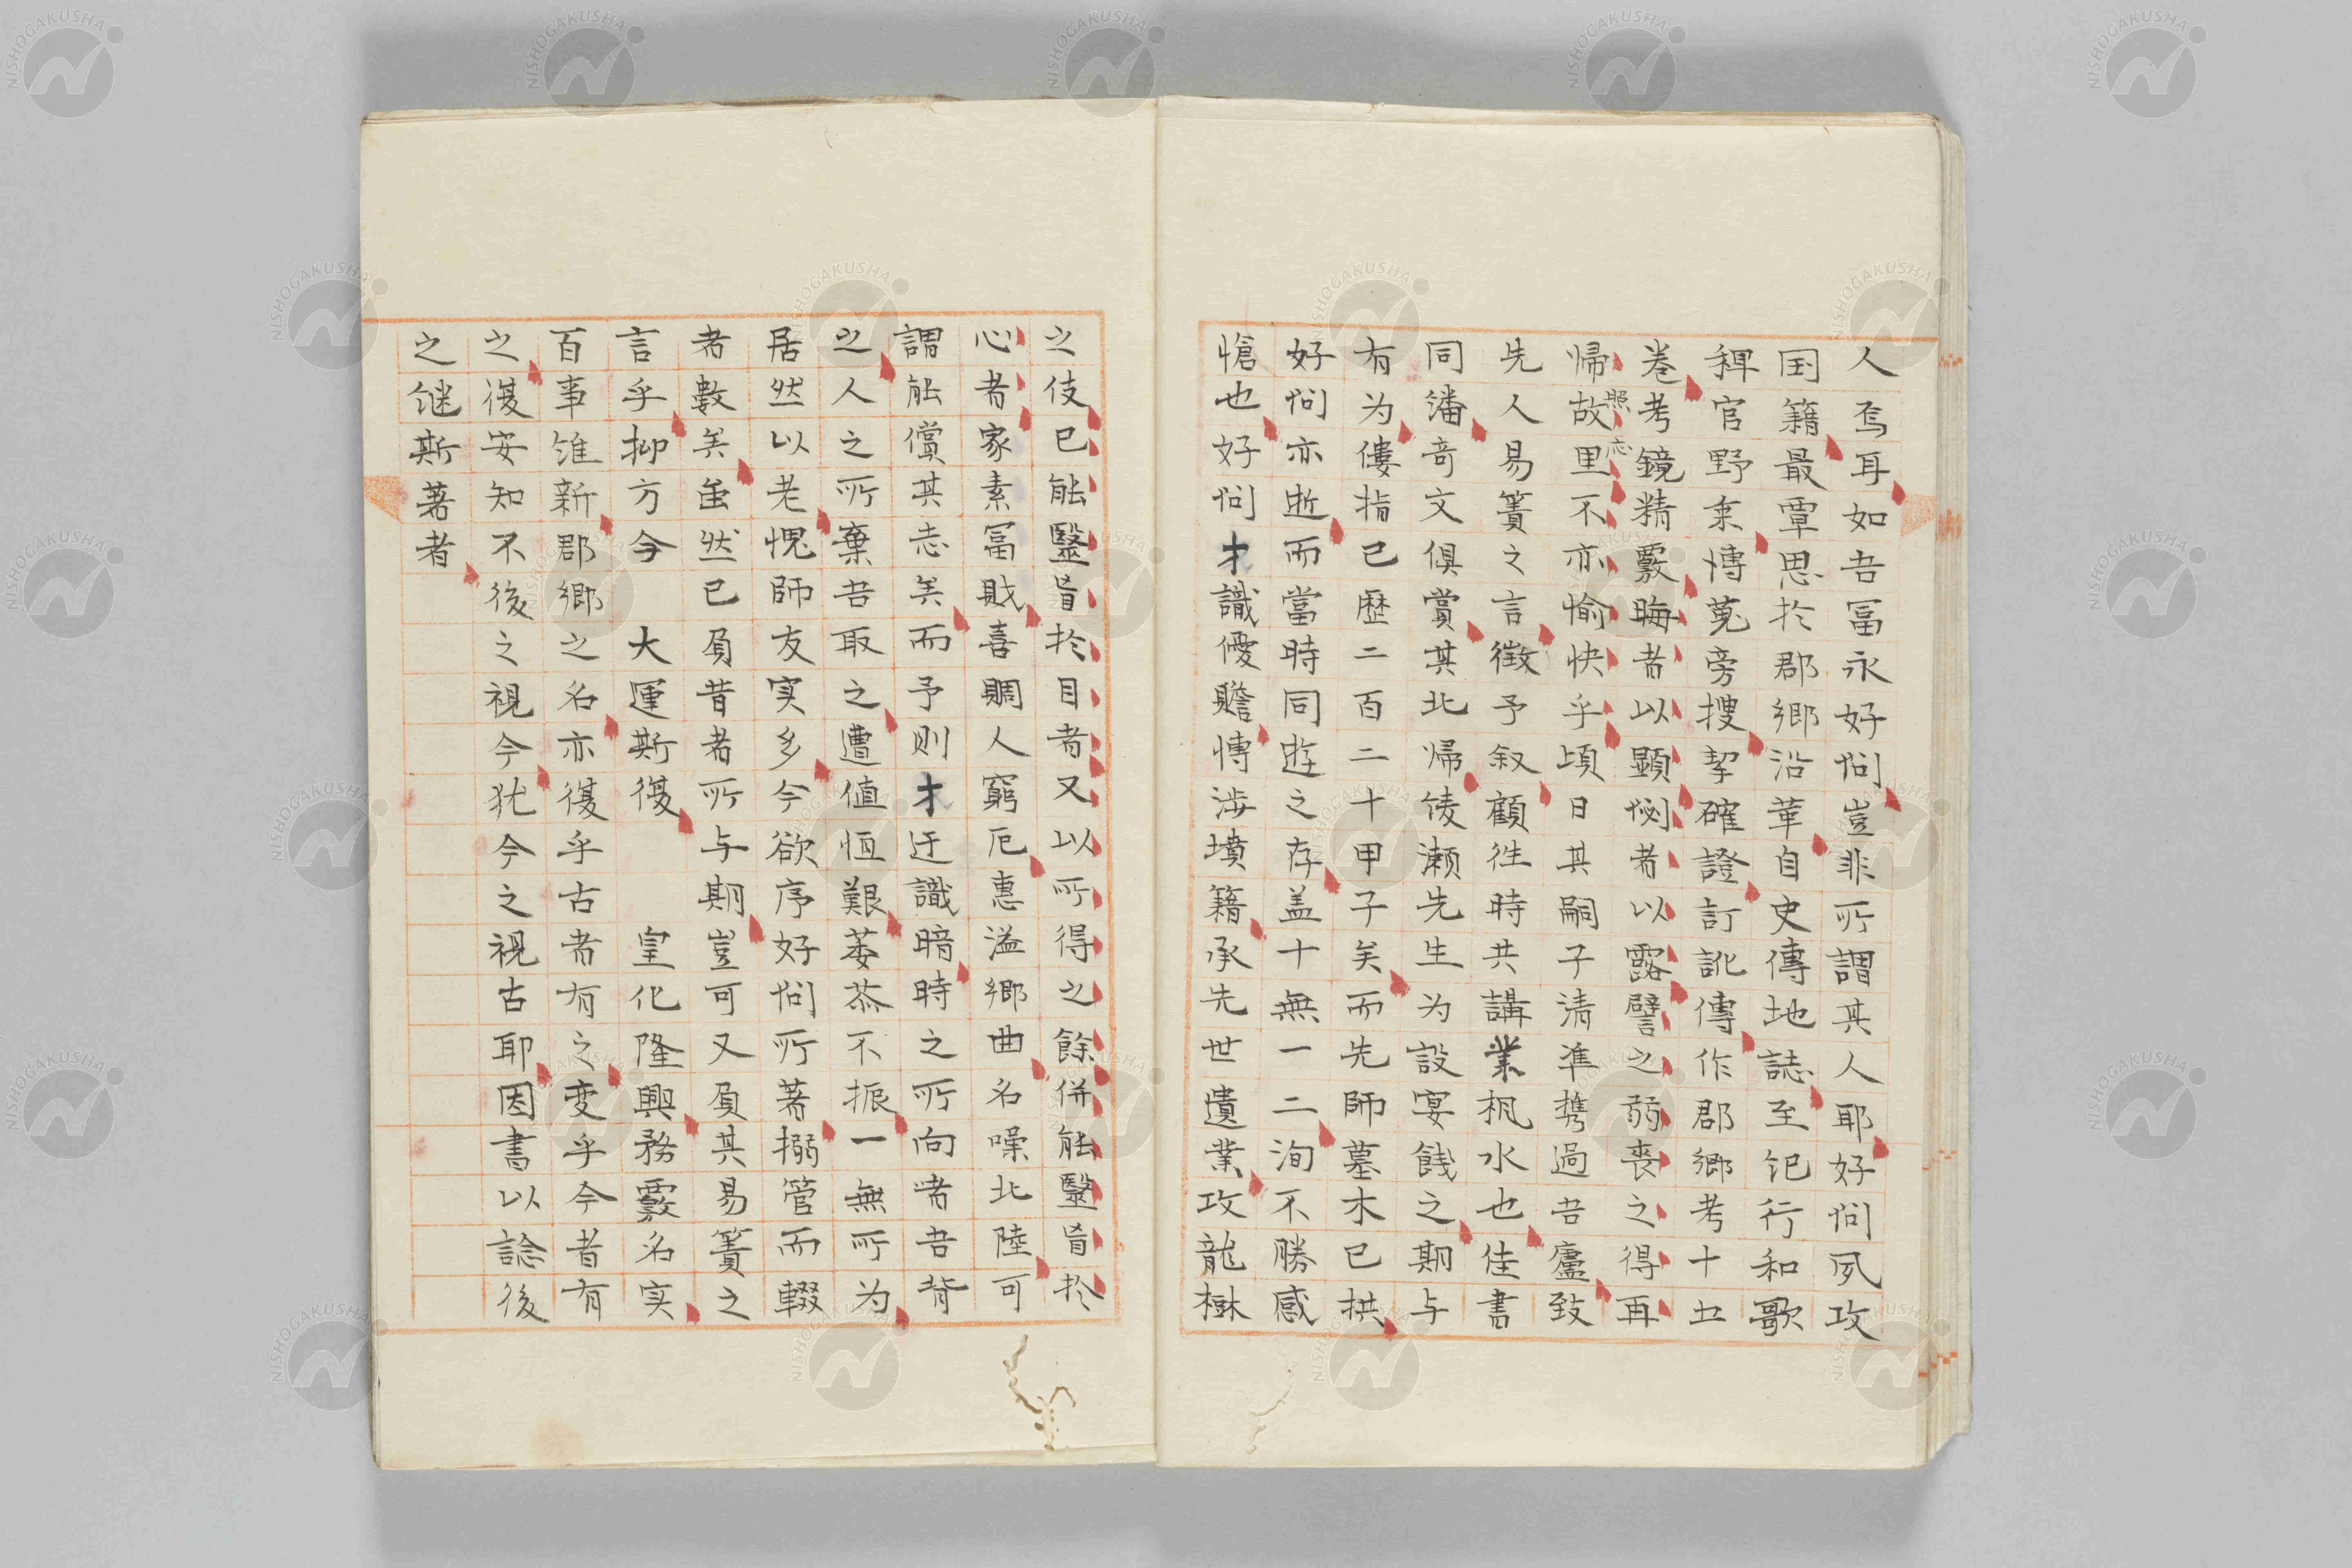 人焉耳如吾冨永好問豈非所謂其人耶好問夙攻
国籍最覃思於郡郷沿革自史傳地誌至紀行和歌
稗官野乗博蒐旁捜挈確證訂訛傳作郡郷考十五
巻考鏡精覈晦者以顕㓖者以露譬之弱喪之得再
照 忘
帰故里不亦愉快乎頃日其嗣子清準携過吾廬致
先人易簀之言徴予叙顧徃時共講業楓水也佳書
同繙奇文倶賞其北帰綾瀬先生为設宴餞之期与
有为僂指已歴二百二十甲子矣而先師墓木已拱
好問亦逝而當時同遊之存盖十無一二洵不勝感
愴也好問才識優贍博渉墳籍承先世遺業攻龍樹
之伎已能毉盲於目者又以所得之餘併能毉盲於
心者家素冨貲喜賙人窮厄惠溢郷曲名噪北陸可
謂能償其志矣而予則才迂識暗時之所向者吾背
之人之所棄吾取之遭値恒艱萎苶不振一無所为
居然以老愧師友実多今欲序好問所著搦管而輟
者數矣虽然已負昔者所与期豈可又負其易簀之
言乎抑方今 大運斯復 皇化隆興務覈名実
百事維新郡郷之名亦復乎古者有之変乎今者有
之後安知不後之視今犹今之視古耶因書以諗後
之継斯著者